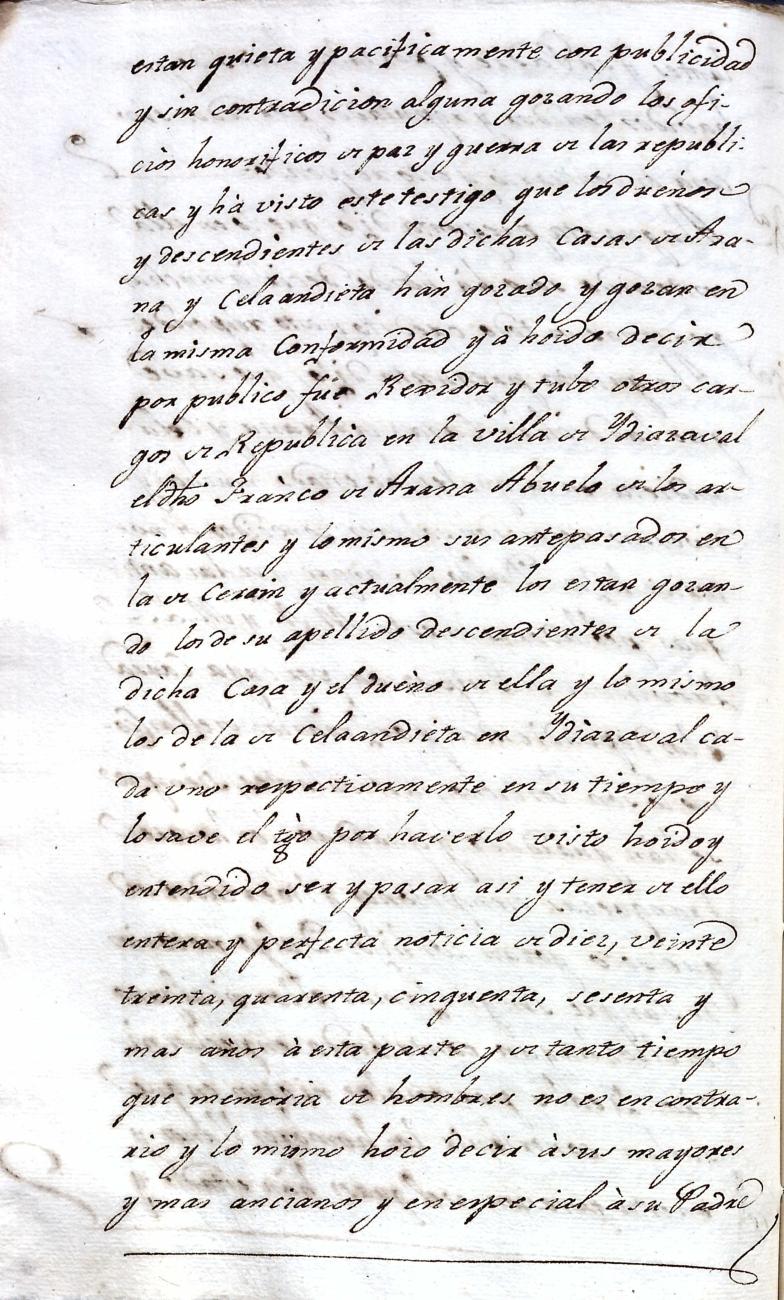 estan quieta y pacificamente con publicidad
y sin contradicion alguna gozando los ofi-
cios honorificos de paz y guerra de las republi-
cas y hà visto este testigo que los dueños
y descendientes de las dichas Casas de Ara-
na y Celaandieta hàn gozado y gozan en
la misma Conformidad y à hoido decir
por publico fue Rexidor y tubo otros car-
gos de Republica en la villa de Ydiazaval
el dho Franco de Arana Abuelo de los ar-
ticulantes y lo mismo sus antepasados en
la de Cerain y actualmente los estan gozan-
do los de su apellido descendientes de la
dicha Casa y el dueño de ella y lo mismo
los de la de Celaandieta en Ydiazaval ca-
da uno respectivamente en su tiempo y
lo save el tgo por haverlo visto hoido y
entendido ser y pasar asi y tener de ello
entera y perfecta noticia de diez, veinte
treinta, quarenta, cinquenta, sesenta y
mas años à esta parte y de tanto tiempo
que memoria de hombres no es en contra-
rio y lo mismo hoio decir à sus mayores
y mas ancianos y en especial à su Padre